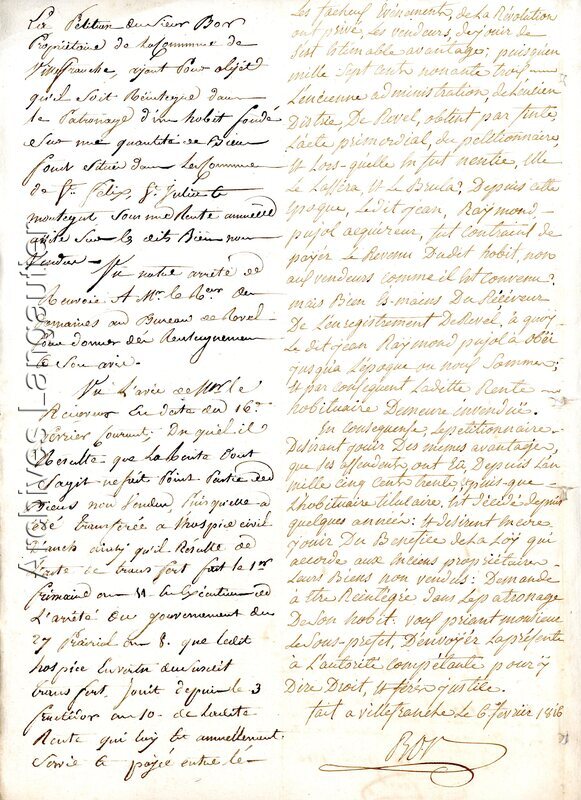 La Pétition du Sieur Bor
Propriétaire de la Commune de
Villefranche, ayant Pour objet
qu'il soit Réintégré dans
le Patronage d'un hobit fondé
sur une quantité de Bien
fond situé dans les Commune
de St. Felix, St. Julia et
montegut sous une Rente annuelle
assise sur les dits Biens non
Vendus —
Vu notre arrêté de
Renvoie A Mr. le Rcur. des
domaines au Bureau de Revel
Pour donner des Renseignemens
& Son avis.
Vu L'avis de Mr. le
Receveur En date du 16.
fevrier Courant, Duquel il
Resulte que la Rente dont
Sagit ne fait Point Partie des
Biens non Vendus, Puisqu'elle a
été transférée a l'hospice civil
ainsy qu'il Resulte de
L'acte de transfert fait le 1er
frimaire an 11 en Execution de
L'arrêté du gouvernement du
27 Prairial an 8. que ledit
hospice En vertu du susdit
transfert, Jouit depuis le 3
fructidor an 10 de Ladite
Rente qui luy Est annuellement
Servie & payée entre les
Les facheux Evénements, de La Révolution
ont privé, Les vendeurs, de jouir de
Cest Estimable avantage; puisqu'en
mille Sept Cent nonante trois
L'encienne administration de L'encien
Distric De Revel, obtent par
L'acte primordial, du petitionnaire,
Et Lors-quelle en fut nentie, Elle
Le Laffera Et Le Brula; Depuis cette
époque, Ledit jean, Raymond
pujol aquereur, fut Contraint de
payer Le Revenu Dudit hobit, non
aux vendeurs comme il Est Convenu;
mais Bien Es-mains Du Réceveur
De L'enregistrement De Revel, a quoy
Le dit jean Raymond pujol a obéi
jusqu'à L'époque ou nous Somme;
Et par Conséquent Laditte Rente
hobituaire Demeure invendüe.
En Conséquense, Le petitionnaire
Désirant jouir Des mêmes avantage,
que Ses assendent ont Eu Depuis L'an
mille cinq Cent trente, puis-que
L'hobituaire titulaire, Est décédé depuis
quelques années: Et désirent encore
jouir Du Benefice de La Loy qui
accorde aux enciens propriétaire
Leurs Biens non vendus: Demande
à Etre Réintégré dans Le patronage
De Son hobit: vous priant monsieur
Le Sous-prefet, D'envoyer La présente
à L'autorité Compétante pour y
Dire Droit, Et ferés justice.
fait a villefranche Le 6 fevrier 1816
BOR
Archives Langautier